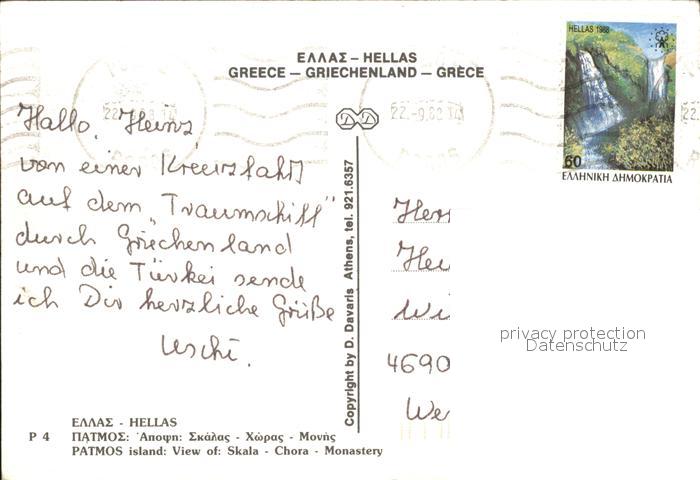 ΕΛΛΑΣ – HELLAS
GREECE – GRIECHENLAND – GRÈCE
HELLAS 1988
60
ΕΛΛΗΝΙΚΗ ΔΗΜΟΚΡΑΤΙΑ
22.-9.
Hallo, Heinz
von einer Kreuzfahrt
auf dem „Traumschiff"
durch Griechenland
und die Türkei sende
ich Dir herzliche Grüße
Uschi.
Copyright by D. Davaris Athens, tel. 921.6357
Herr
Hei
Wi
4690
We
privacy protection
Datenschutz
ΕΛΛΑΣ - HELLAS
P 4 ΠΑΤΜΟΣ: Ἄποψη: Σκάλας - Χώρας - Μονῆς
PATMOS island: View of: Skala - Chora - Monastery